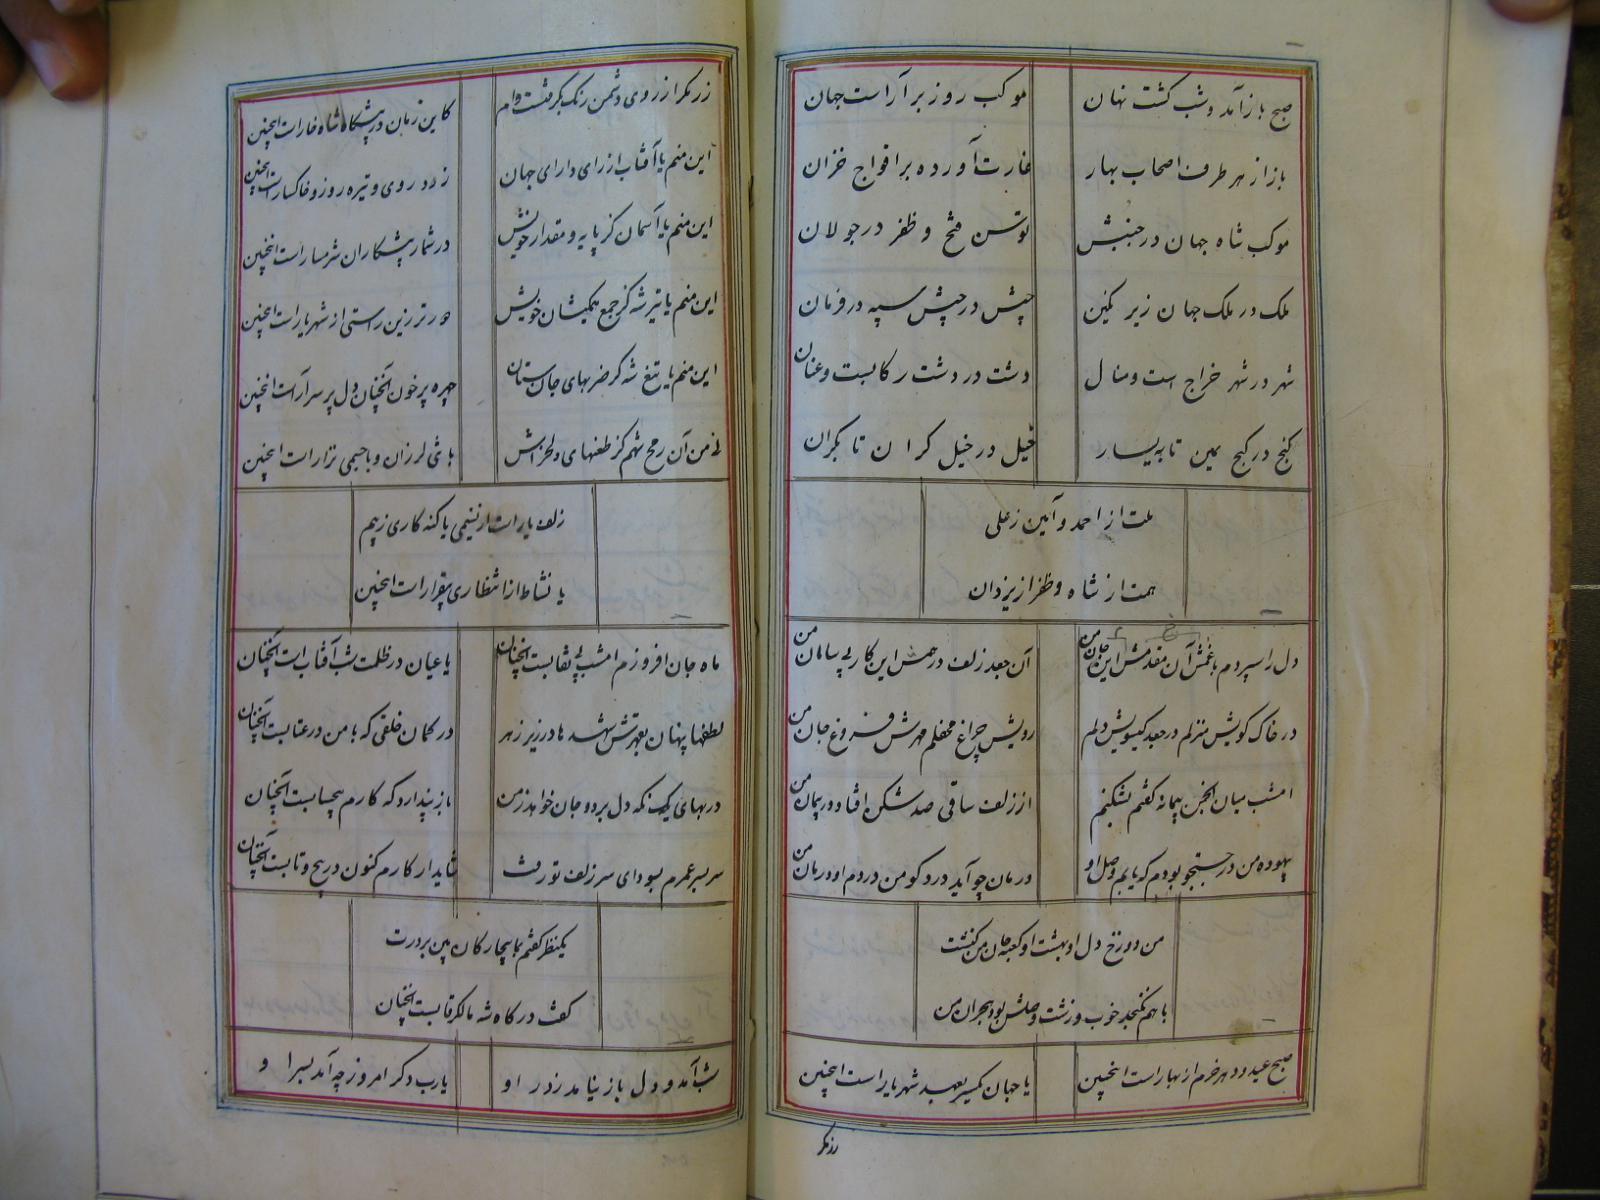 صبح بازآمد و شب گشت نهان موکب روز برآراست جهان
باز از هر طرف اصحاب بهار غارت آورده بر افواج خزان
موکب شاه جهان در جنبش توسن فتح و ظفر در جولان
ملک در ملک جهان زیر نگین جیش در جیش سپه در فرمان
شهر در شهر خراج است و منال دشت در دشت رکابست و عنان
گنج در گنج یمین تا به یسار خیل در خیل کران تا بکران
ملت از احمد و آیین ز علی
همت از شاه و ظفر از یزدان
دل را سپردم با غمش آن مقدمش این جان من آن جعد زلف درهمش این کار بی سامان من
در خاک کویش منزلم در جعد گیسویش دلم رویش چراغ محفلم مهرش فروغ جان من
امشب میان انجمن پیمانه گفتم نشکنم از زلف ساقی صد شکن افتاد در پیمان من
بیهوده من در جستجو بودم که یابم وصل او درمان چو آید درد کو من دردم او درمان من
من دوزخ دل او بهشت او کعبه جان من کنشت
با هم نگنجد خوب و زشت وصلش بود هجران من
صبح عید و دهر خرم از بهار است اینچنین یا جهان یکسر بعهد شهریار است اینچنین
زرمکر
زرمکر از روی دشمن رنگ بگرفتست وام کاین زمان در پیشگاه شاه خار است اینچنین
این منم یا آفتاب از رای دارای جهان زرد روی و تیره روز و خاکسار است اینچنین
این منم یا آسمان کز پایه و مقدار خویش در شمار پیشکاران شرمسار است اینچنین
این منم یا تیر شه کز جمع همکیشان خویش دورتر زین راستی از شهریار است اینچنین
این منم یا تیغ شه کز ضربهای جان ستان چهره پر خون آنچنان دل پر سرار است اینچنین
نی من آن رمح شهم کز طعنهای دلخراش باتنی لرزان و با جسمی نزار است اینچنین
زلف یار است از نسیمی یا گنه کاری ز بیم
یا نشاط از انتظاری بیقرار است اینچنین
ماه جان افروزم امشب بی نقابست آنچنان یا عیان در ظلمت شب آفتاب است آنچنان
لطفها پنهان بقهرش شهدها در زیر زهر در گمان خلقی که با من در عتابست آنچنان
در بهای یک نگه دل برد و جان خواهد ز من باز پندارد که کارم بیحسابست آنچنان
سر بسر عمرم بسودای سر زلف تو رفت شاید ار کارم کنون در پیچ و تابست آنچنان
یکنظر گفتم به بیچارگان بین بر درت
گفت درگاه شه مالک رقابست آنچنان
شب آمد و دل باز نیامد ز در او یارب دگر امروز چه آمد بسر او